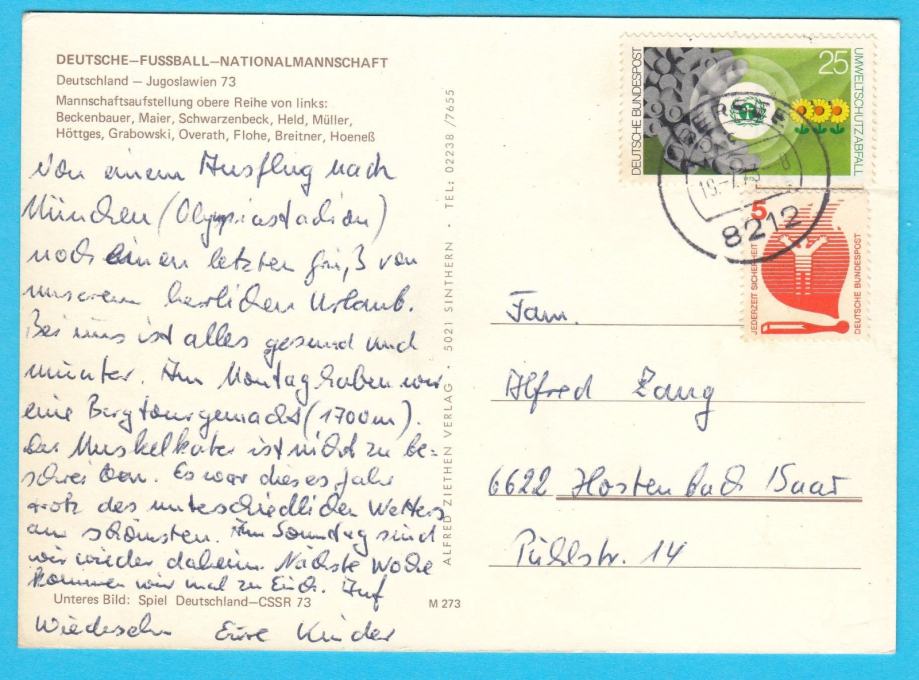 DEUTSCHE–FUSSBALL–NATIONALMANNSCHAFT
Deutschland – Jugoslawien 73
Mannschaftsaufstellung obere Reihe von links:
Beckenbauer, Maier, Schwarzenbeck, Held, Müller,
Höttges, Grabowski, Overath, Flohe, Breitner, Hoeneß
Von einem Ausflug nach
München (Olympiastadion)
noch einen letzten Gruß von
unserem herrlichen Urlaub.
Bei uns ist alles gesund und
munter. Am Montag haben wir
eine Bergtour gemacht (1700m).
Der Muskelkater ist nicht zu be=
schreiben. Es war dieses Jahr
trotz des unterschiedlichen Wetters
am schönsten. Am Sonntag sind
wir wieder daheim. Nächste Woche
kommen wir mal zu Euch. Auf
Wiedersehn Eure Kinder
Unteres Bild: Spiel Deutschland–CSSR 73
M 273
ALFRED ZIETHEN VERLAG · 5021 SINTHERN · TEL: 02238 /7655
DEUTSCHE BUNDESPOST
25
UMWELTSCHUTZ: ABFALL
8212
5
JEDERZEIT SICHERHEIT
DEUTSCHE BUNDESPOST
Fam.
Alfred Zang
6622 Hostenbach / Saar
Pühlstr. 14